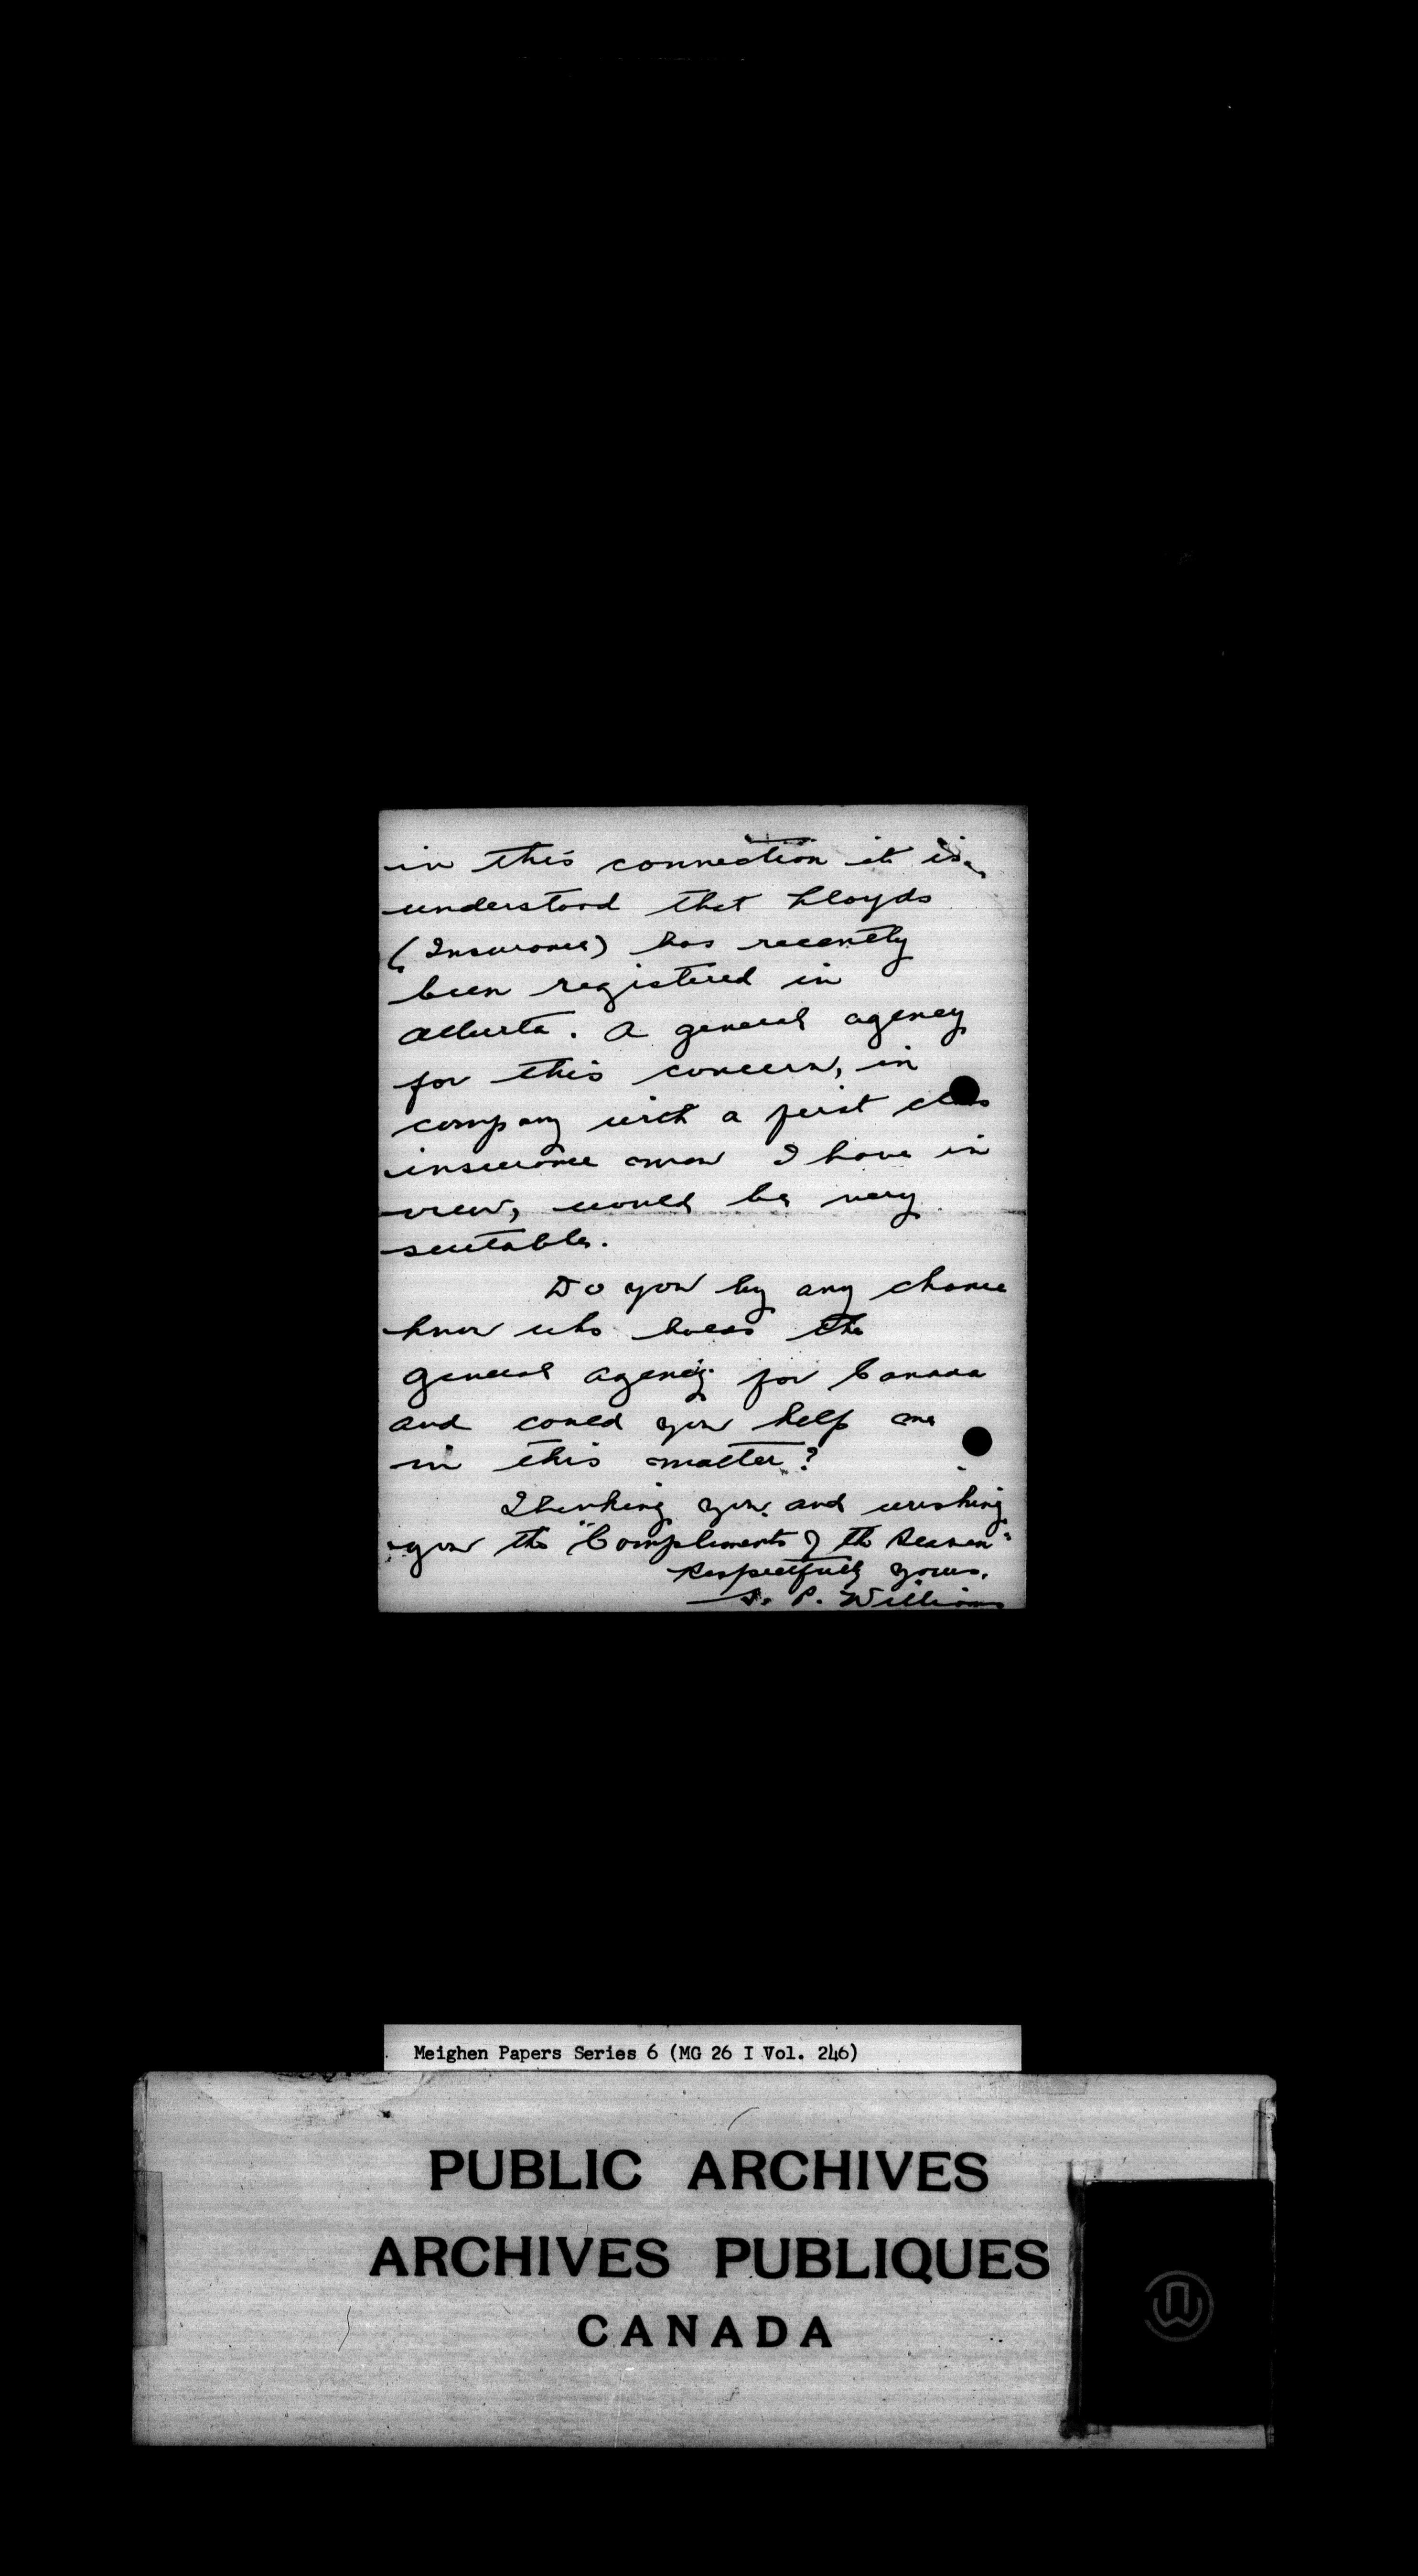 in this connection it is
understood that Lloyds
(Insurance) has recently
been registered in
Alberta. A general agency
for this concern, in
company with a first class
insurance man I have in
view, would be very
suitable.
Do you by any chance
know who holds the
general agency for Canada
and could you help me
in this matter?
Thanking you and wishing
you the "Compliments of the Season"
Respectfully yours,
P. Williams
Meighen Papers Series 6 (MG 26 I Vol. 246)
PUBLIC ARCHIVES
ARCHIVES PUBLIQUES
CANADA